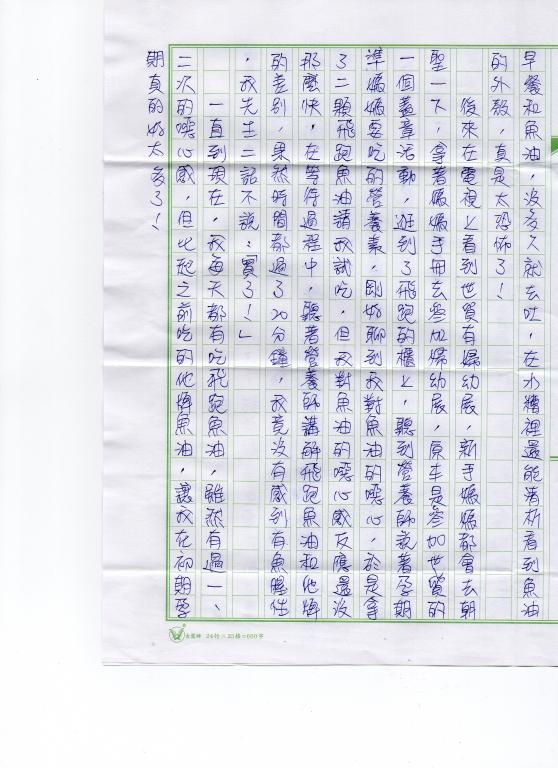 早餐和魚油，沒多久就去吐，在水糟裡還能清析看到魚油
的外殼，真是太恐怖了！
後來在電視上看到世貿有婦幼展，新手媽媽都會去朝
聖一下，拿著媽媽手冊去參加婦幼展，原本是參加世貿的
一個蓋章活動，逛到了飛跑的櫃上，聽到營養師說著孕期
準媽媽要吃的營養素，剛好聊到我對魚油的噁心，於是拿
了二顆飛跑魚油請我試吃，但我對魚油的噁心感反應還沒
那麼快，在等待過程中，聽著營養師講解飛跑魚油和他牌
的差別，果然時間都過了20分鐘，我竟沒有感到有魚腥味
，我先生二話不說：「買了！」
一直到現在，我每天都有吃飛跑魚油，雖然有過一、
二次的噁心感，但比起之前吃的他牌魚油，讓我在初期至
期真的好太多了！
24行×25格=600字